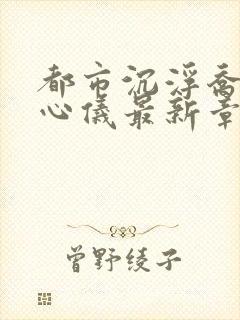 都市沉浮乔
心仪最新章
曾野绫子